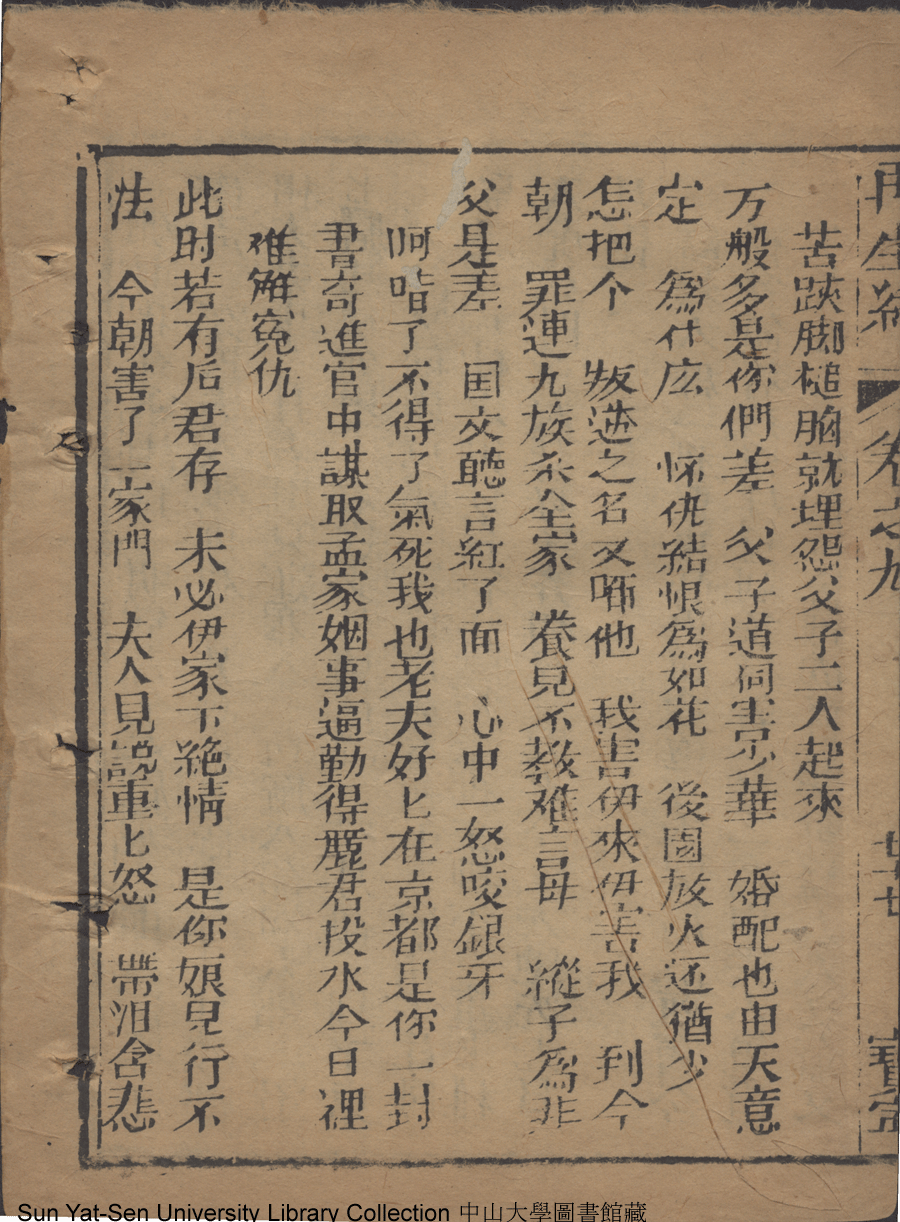 再生緣 卷之九 廿七 寶寧
苦跌脚槌胸就埋怨父子二人起來
万般多是你們差 父子道同害少華 婚配也由天意
定 爲什庅 怀仇結恨爲如花 後園放火还猶少
怎把个 叛逆之名又唡他 我害伊來伊害我 到今
朝 罪連九族杀全家 養見不教难言母 縱子爲非
父是差 国丈聽言紅了面 心中一怒咬銀牙
呵唶了不得了氣死我也老夫好匕在京都是你一封
書奇進官中謀取孟家姻事逼勤得麗君投水今日裡
难解寃仇
此时若有后君存 未必伊家下絶情 是你娘見行不
法 今朝害了一家門 夫人見說重匕怒 帶泪含悲
Sun Yat-Sen University Library Collection 中山大學圖書館藏